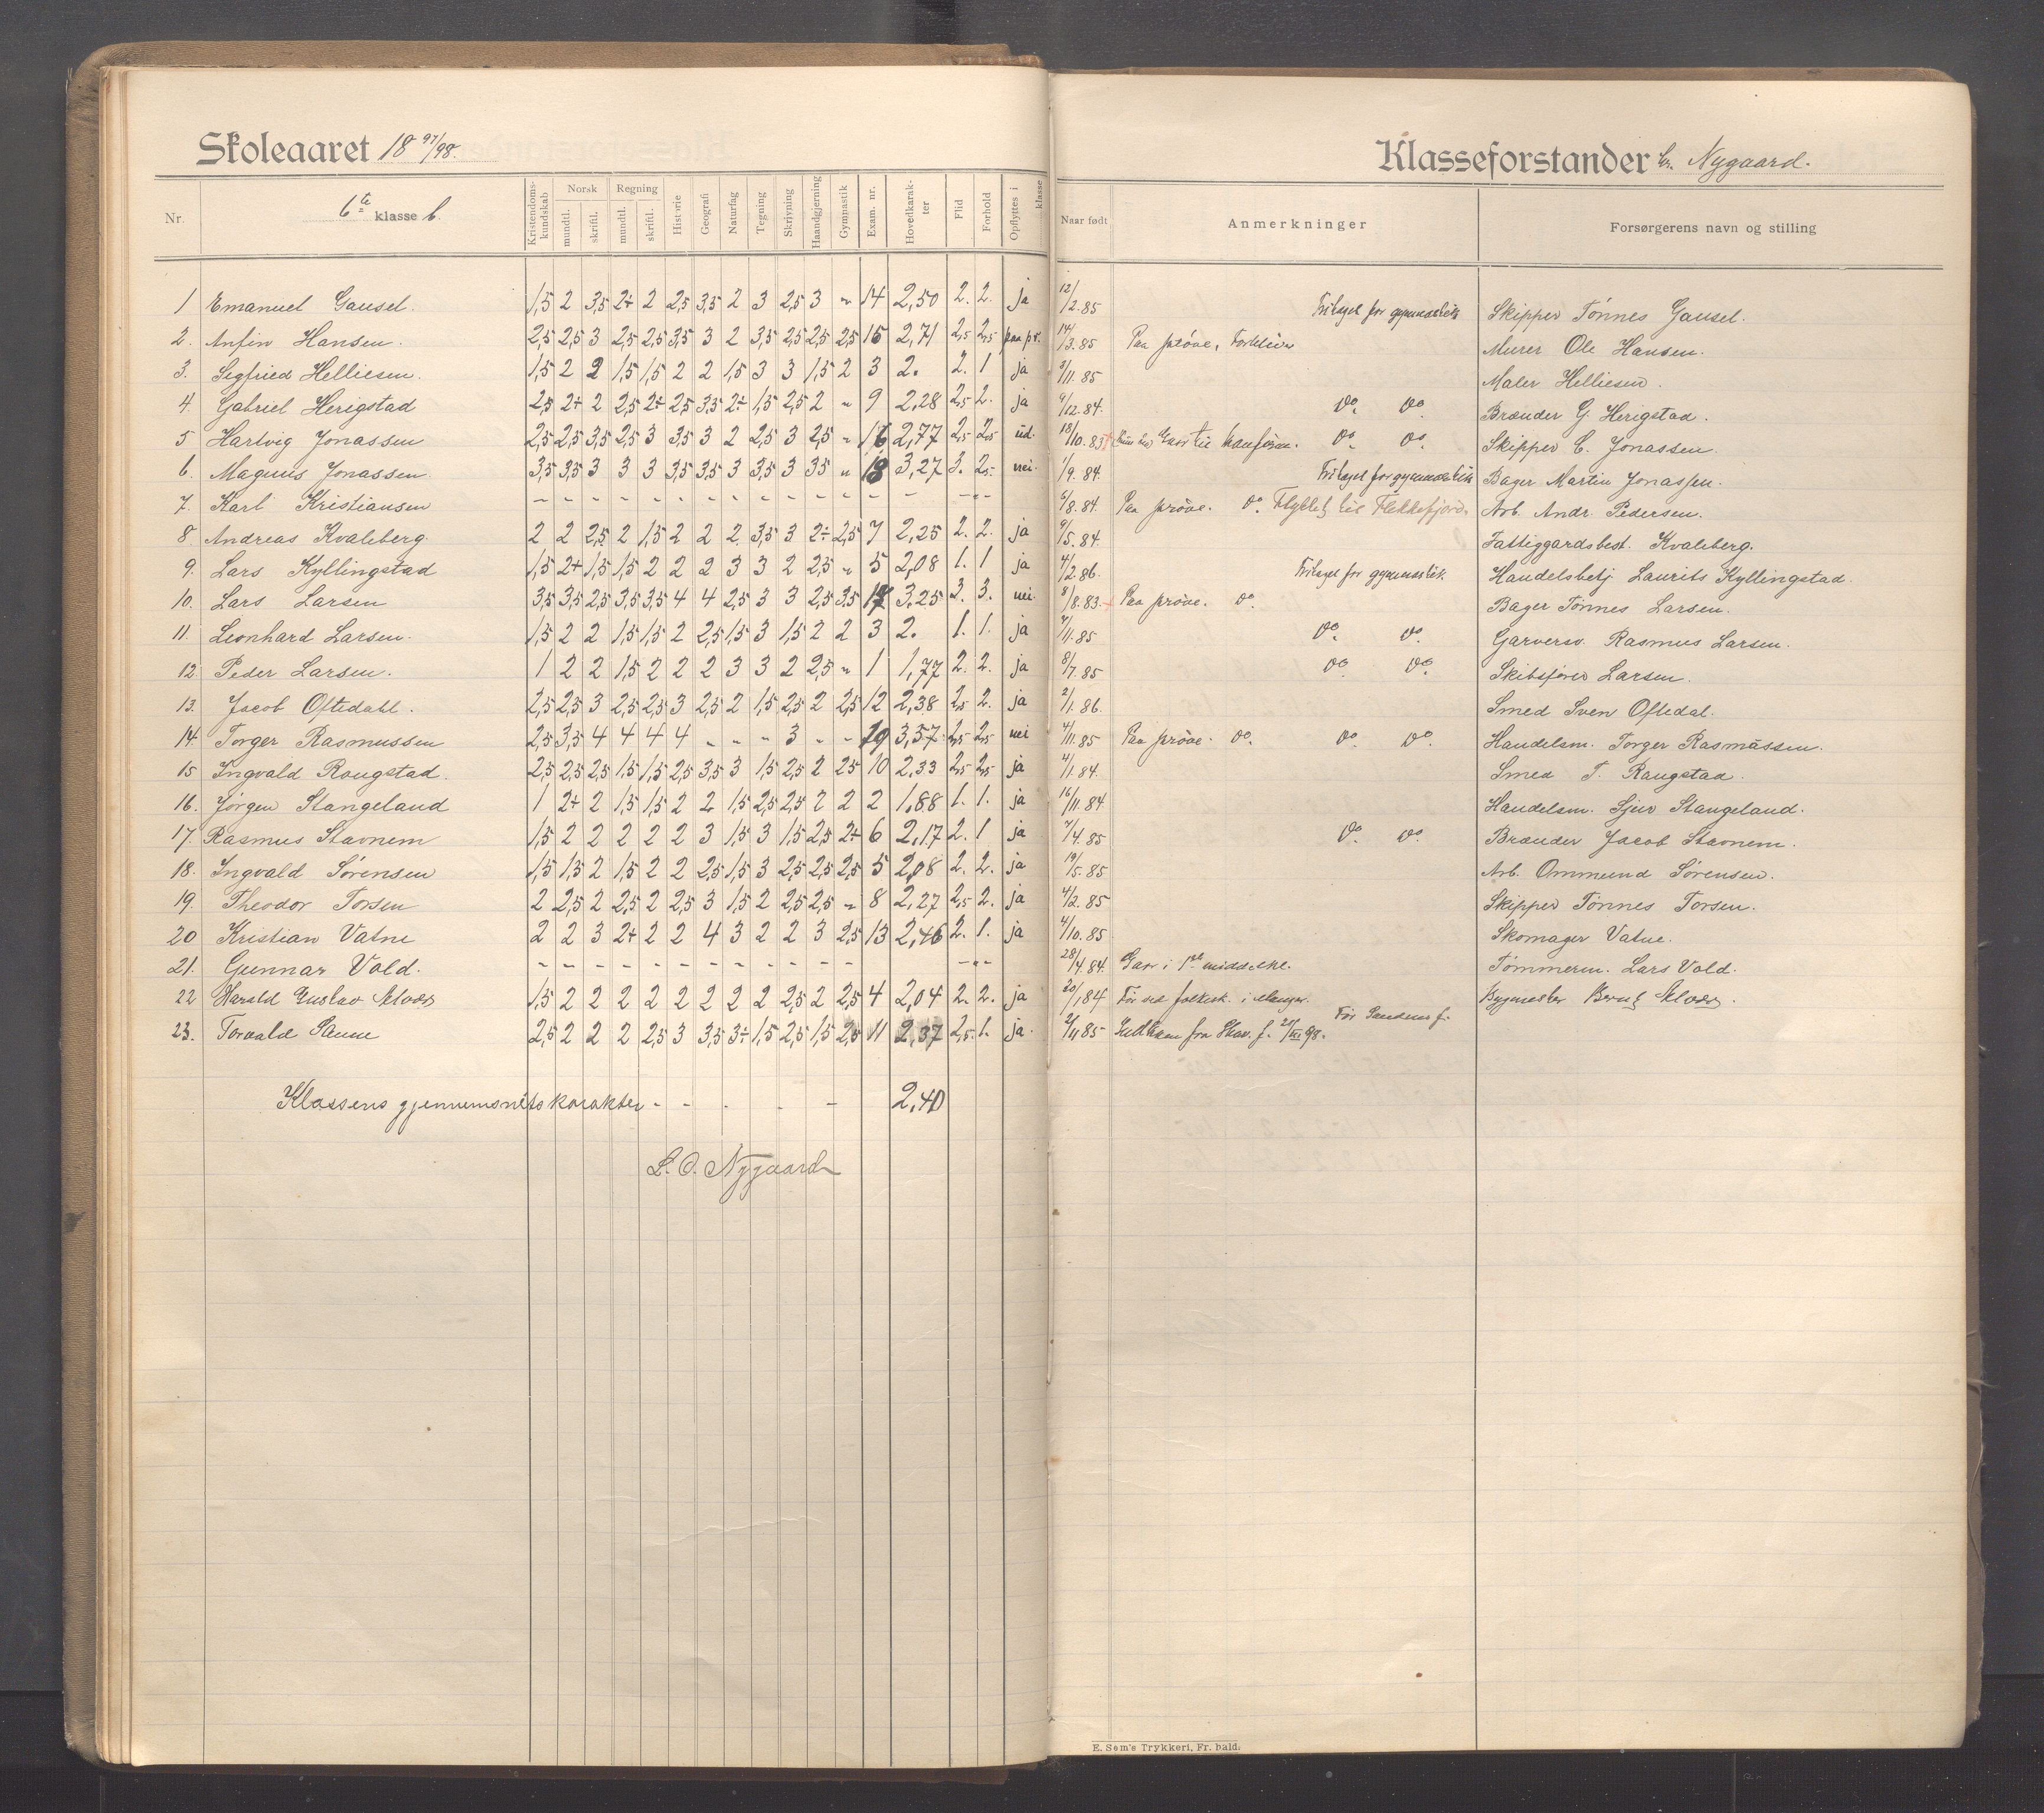 Skoleaaret 18 97/98.
Nr.
6te klasse b.
Kristendoms-kundskab
Norsk
mundtl.
skriftl.
Regning
mundtl.
skriftl.
Historie
Geografi
Naturfag
Tegning
Skrivning
Haandgjerning
Gymnastik
Exam. nr.
Hovedkarak-ter
Flid
Forhold
Opflyttes i klasse
1 Emanuel Gausel. 1,5 2 3,5 2+ 2 2,5 3,5 2 3 2,5 3 „ 14 2,50 2. 2. ja
2. Anfin Hansen. 2,5 2,5 3 2,5 2,5 3,5 3 2 3,5 2,5 2,5 2,5 15 2,71 2,5 2,5 paa pr.
3. Segfried Helliesen. 1,5 2 2 1,5 1,5 2 2 1,5 3 3 1,5 2 3 2. 2. 1 ja
4. Gabriel Herigstad 2,5 2+ 2 2,5 2+ 2,5 3,5 2÷ 1,5 2,5 2 „ 9 2,28 2,5 2. ja
5 Hartvig Jonassen 2,5 2,5 3,5 2,5 3 3,5 3 2 2,5 3 2,5 „ 16 2,77 2,5 2,5 ud.
6. Magnus Jonassen. 3,5 3,5 3 3 3 3,5 3,5 3 3,5 3 3,5 „ 18 3,27 3. 2,5 nei.
7. Karl Kristiansen – – – – – – – – – – – – – – – „ –
8. Andreas Kvaleberg. 2 2 2,5 2 1,5 2 2 2 3,5 3 2÷ 2,5 7 2,25 2. 2. ja
9. Lars Kyllingstad 1,5 2+ 1,5 1,5 2 2 2 3 3 2 2,5 „ 5 2,08 1. 1 ja
10. Lars Larsen 3,5 3,5 2,5 3,5 3,5 4 4 2,5 3 3 2,5 3,5 17 3,25 3. 3. nei.
11. Leonhard Larsen. 1,5 2 2 1,5 1,5 2 2,5 1,5 3 1,5 2 2 3 2. 1. 1. ja
12. Peder Larsen. 1 2 2 1,5 2 2 2 3 3 2 2,5 „ 1 1,77 2. 2. ja
13. Jacob Oftedahl. 2,5 2,5 3 2,5 2,5 3 2,5 2 1,5 2,5 2 2,5 12 2,38 2,5 2. ja
14. Torger Rasmussen 2,5 3,5 4 4 4 4 „ „ „ 3 „ „ 19 3,57 2,5 2,5 nei
15 Ingvald Rougstad. 2,5 2,5 2,5 1,5 1,5 2,5 3,5 3 1,5 2,5 2 2,5 10 2,33 2,5 2,5 ja
16. Jørgen Stangeland 1 2+ 2 1,5 1,5 2 2 1,5 2,5 2,5 2 2 2 1,88 1. 1. ja
17. Rasmus Stavnem 1,5 2 2 2 2 2 3 1,5 3 1,5 2,5 2÷ 6 2,17 2. 1 ja
18. Ingvald Sørensen 1,5 1,5 2 1,5 2 2 2,5 1,5 3 2,5 2,5 2,5 5 2,08 2. 2. ja
19. Theodor Torsen 2 2,5 2 2,5 2 2,5 3 1,5 2 2,5 2,5 „ 8 2,27 2,5 2. ja
20 Kristian Vatne 2 2 3 2+ 2 2 4 3 2 2 3 2,5 13 2,46 2. 1. ja
21. Gunnar Vold. – – – – – – – – – – – – – „ –
22 Harald Gustav 1,5 2 2 2 2 2 2 2 2 2,5 2 2,5 4 2,04 2. 2. ja
23. Torvald Sanne 2,5 2 2 2 2,5 3 3,5 3÷ 1,5 2,5 1,5 2,5 11 2,37 2,5. 1. ja.
Klassens gjennemsnitskarakter – – . . – 2,40
L. O. Nygaard
Klasseforstander hr. Nygaard.
Naar født
Anmerkninger
Forsørgerens navn og stilling
12/2.85 Fritaget for gymnastik Skipper Tønnes Gausel.
14/3.85 Paa prøve. Murer Ole Hansen.
3/11.85 Maler Helliesen.
9/12.84. Do. Do. Brænder G. Herigstad.
18/10.83 Do. Do. Skipper C. Jonassen.
1/9.84. Fritaget for gymnastik Bager Martin Jonassen.
6/8.84. Paa prøve. Do. Flyttet til Flekkefjord. Arb. Andr. Pedersen.
9/5.84. Fattiggardsbest. Kvaleberg.
4/2.86. Fritaget for gymnastik. Handelsbetj. Laurits Kyllingstad.
8/8.83. Paa prøve. Do. Bager Tønnes Larsen.
7/11.85 Do. Do. Garversv. Rasmus Larsen.
8/7.85 Do. Do. Skibsfører Larsen.
2/1.86. Smed Sven Oftedal.
4/11.85 Paa prøve. Do. Do. Do. Handelsm. Torger Rasmussen.
4/1.84. Smed T. Raugstad.
16/11.84. Handelsm. Sjur Stangeland.
7/4.85 Do. Do. Brænder Jacob Stavnem.
19/5.85 Arb. Ommund Sørensen.
4/2.85 Skipper Tønnes Torsen.
4/10.85 Skomager Vatne.
28/4.84. Gaar i 1ste middelkl. Tømmerm. Lars Vold.
20/1 84 Før ved folkesk. i Bygmester
2/11 85 Indkom fra 98. Før
E. Søm's Trykkeri, Fr. hald.